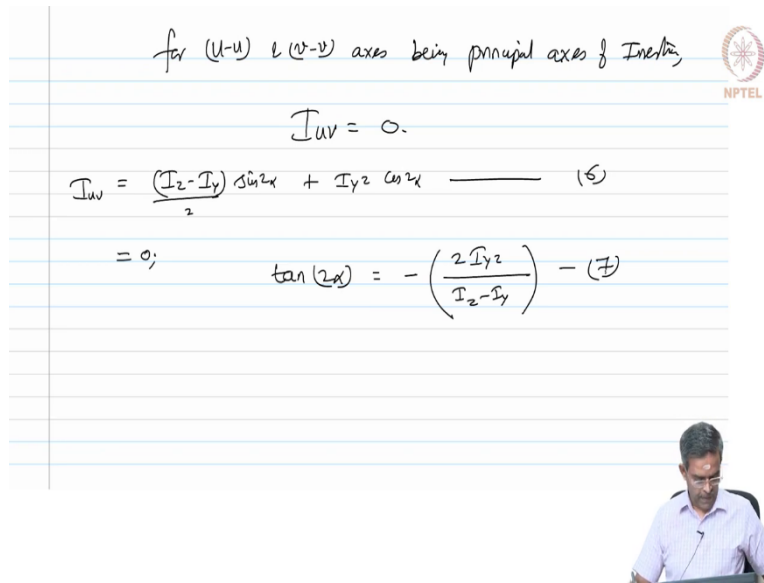 for (u-u) & (v-v) axes being principal axes of Inertia,
NPTEL
Iuv = 0.
Iuv = (Iz-Iy)/2 sin2α + Iyz cos2α ——— (6)
= 0;
tan(2α) = - (2Iyz / Iz-Iy) - (7)